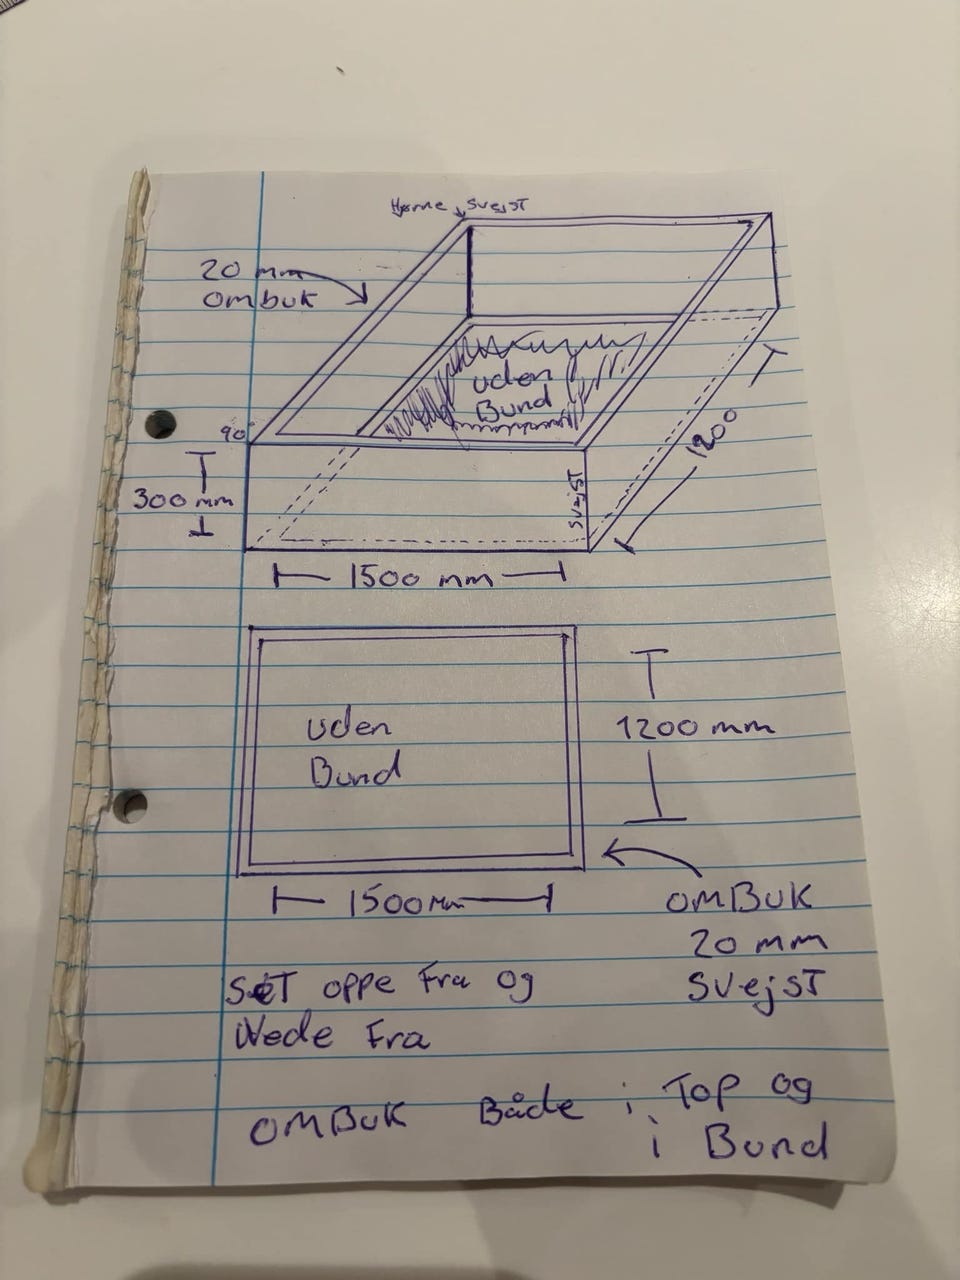 Hjørne svejst
20 mm
ombuk
uden
Bund
90°
300 mm
svejst
1200
1500 mm
uden
Bund
1200 mm
1500 mm
OMBUK
20 mm
SVejST
SET oppe Fra og
Nede Fra
OMBUK Både i Top og
i Bund